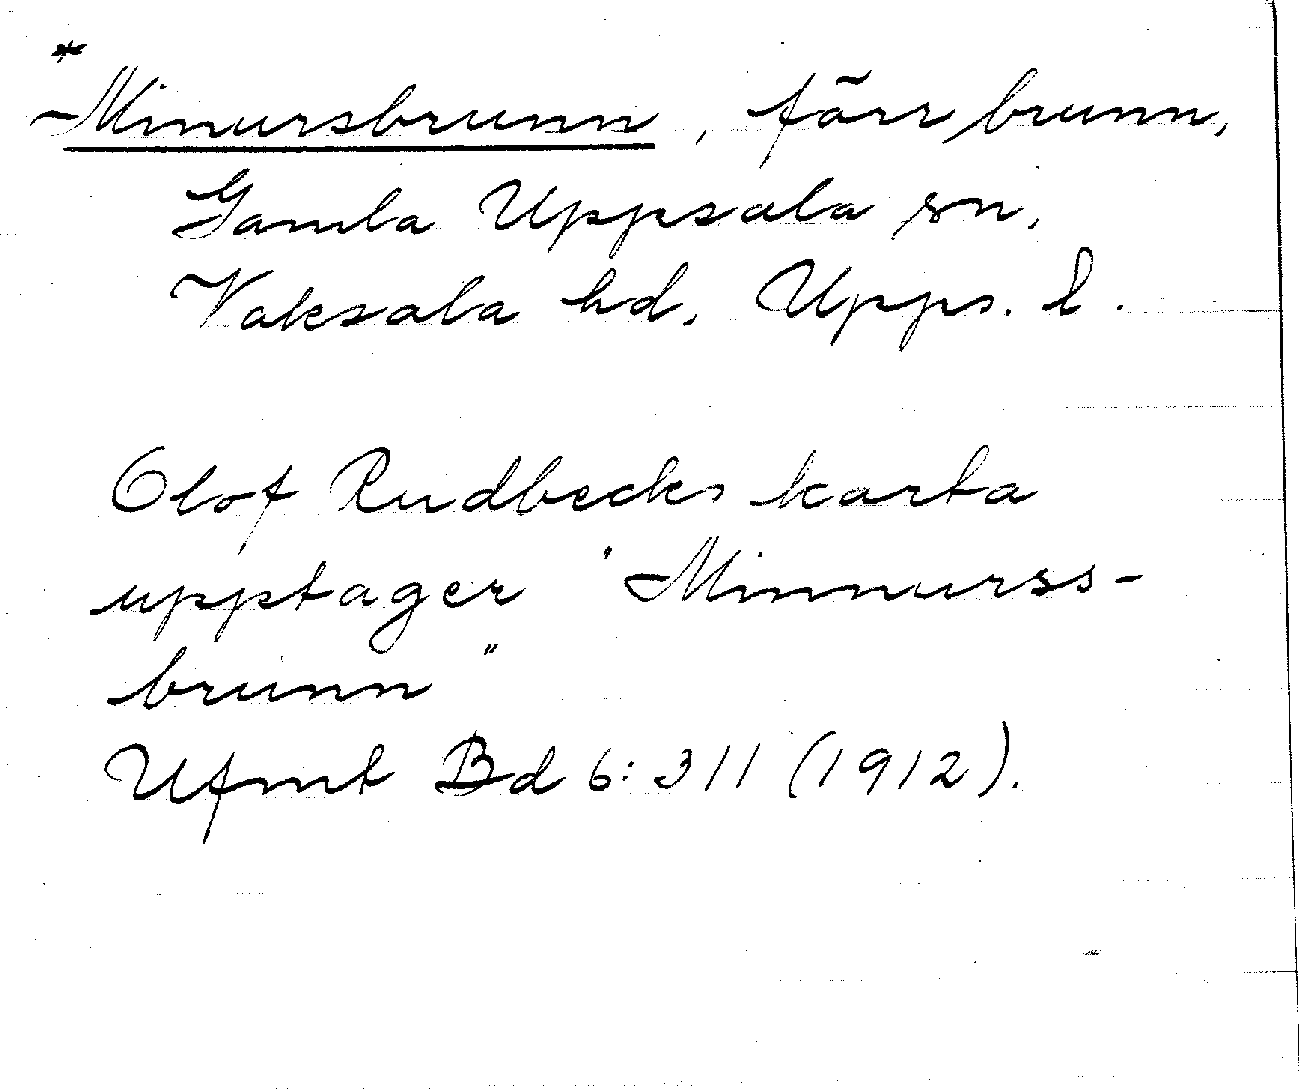 *
Minursbrunn, förr brunn,
Gamla Uppsala sn,
Vaksala hd, Upps. l.
Olof Rudbecks karta
upptager "Minnurss-
brunn"
Ufmt Bd 6:311 (1912).